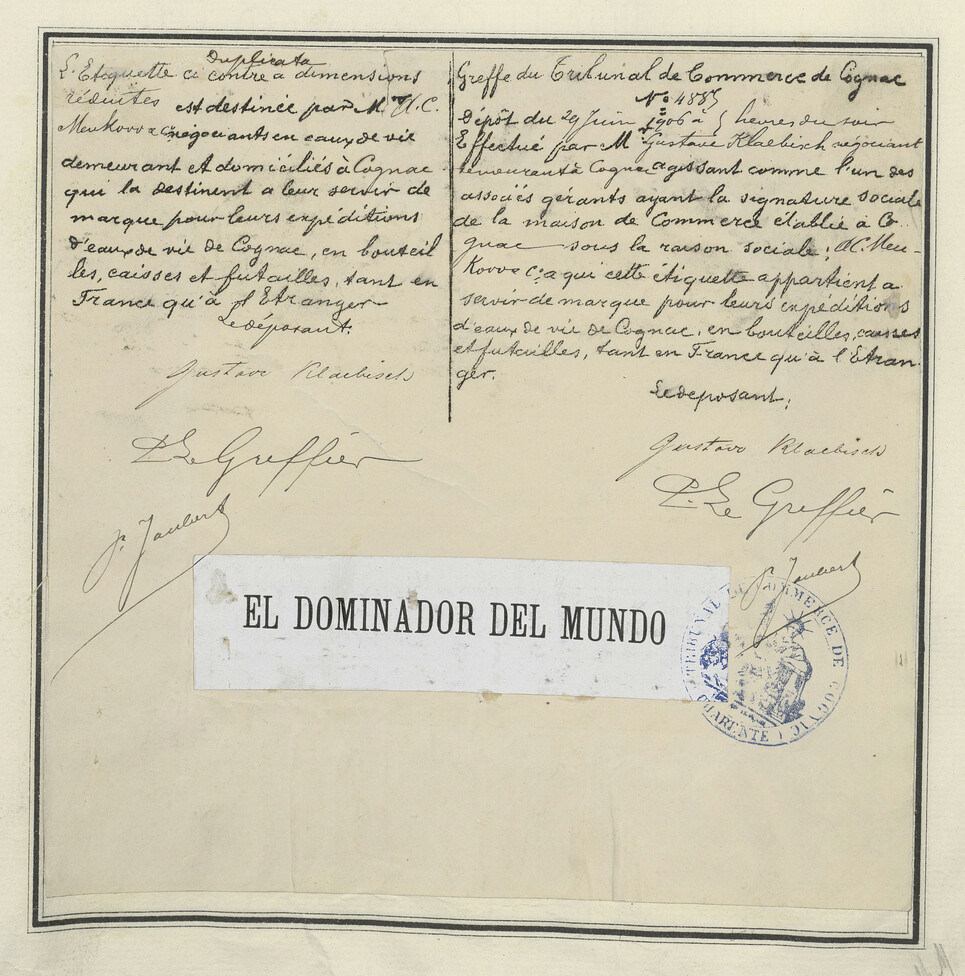 Duplicata
L'Etiquette ci contre a dimensions
réduites est destinée par M A.C.
Meukow & Cie négociants en eaux de vie
demeurant et domiciliés à Cognac
qui la destinent a leur servir de
marque pour leurs expéditions
d'eaux de vie de Cognac, en bouteil
les, caisses et futailles, tant en
France qu'à l'Etranger
Le déposant:
Gustave Klaebisch
P. Le Greffier
J. Joubert
Greffe du Tribunal de Commerce de Cognac
No 4885
Dépôt du 29 Juin 1906 à 5 heures du soir
Effectué par M Gustave Klaebisch négociant
demeurant à Cognac agissant comme l'un des
associés gérants ayant la signature sociale
de la maison de Commerce établie à Co
gnac sous la raison sociale: A.C. Meu-
kow & Cie a qui cette étiquette appartient a
servir de marque pour leurs expéditions
d'eaux de vie de Cognac, en bouteilles, caisses
et futailles, tant en France qu'à l'Etran
ger.
Le déposant:
Gustave Klaebisch
P. Le Greffier
J. Joubert
EL DOMINADOR DEL MUNDO
TRIBUNAL DE COMMERCE DE COGNAC (CHARENTE)